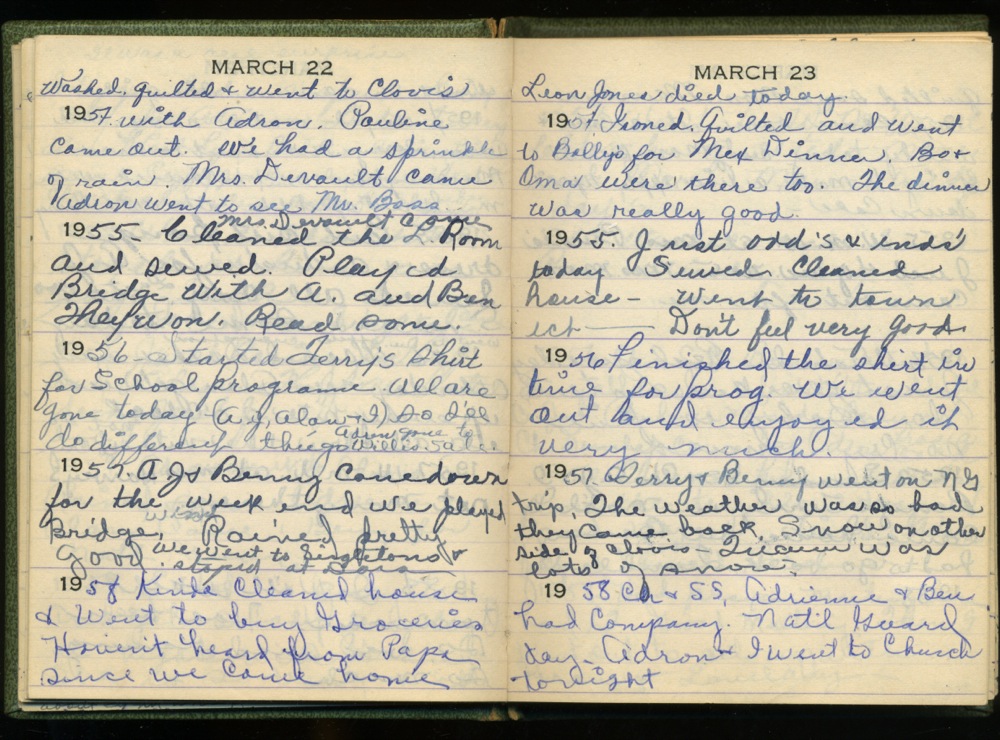 MARCH 22
Washed, quilted & went to Clovis
1957. with Adron. Pauline
came out. We had a sprinkle
of rain. Mrs. Devault came
Adron went to see Mr. Bass
Mrs. Devault came
1955- Cleaned the L. Room
and sewed. Played
Bridge with A. and Ben
They won. Read some.
1956- Started Terry's shirt
for School programe All are
gone today (A.J, Alan & I) so I'll
do different things
Adron gone to
Willis. Sale.
1957. A J & Benny came down
for the week end and we played
Bridge, Rained pretty
good. We went to Singletons &
stoped at
1958 Kinda Cleaned house
& Went to buy Groceries
Havent heard from Papa
since we came home
MARCH 23
Leon Jones died today.
1957 Ironed. Quilted and went
to Bolly's for Mex Dinner. Bo &
Oma were there too. The dinner
was really good.
1955. Just odd's & ends'
today Sewed. Cleaned
house - Went to town
ect Don't feel very good.
1956 Finished the shirt in
time for prog. We went
out and enjoyed it
very much.
1957 Terry & Benny went on NG
trip. The weather was so bad
they came back. Snow on other
side of Clovis - was
lots of snow.
1958. Ch & SS, Adrienne & Ben
had Company. Nat'l Guard
day - Adron & I went to Church
tonight